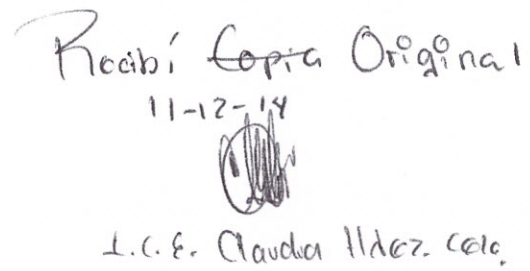 Recibí Copia Original
11-12-14
L.C.E. Claudia Hdez.